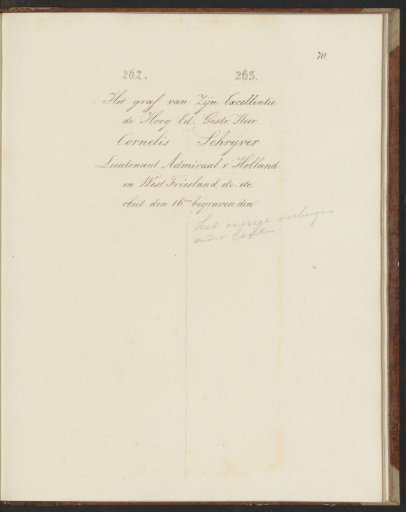 70.
262. 263.
Het graf van Zijn Excellentie
de Hoog Ed. Gestr. Heer
Cornelis Schrijver
Lieutenant Admiraal v. Holland
en West Friesland etc. etc.
obiit den 16en begraven den
het overige verborgen
onder banken